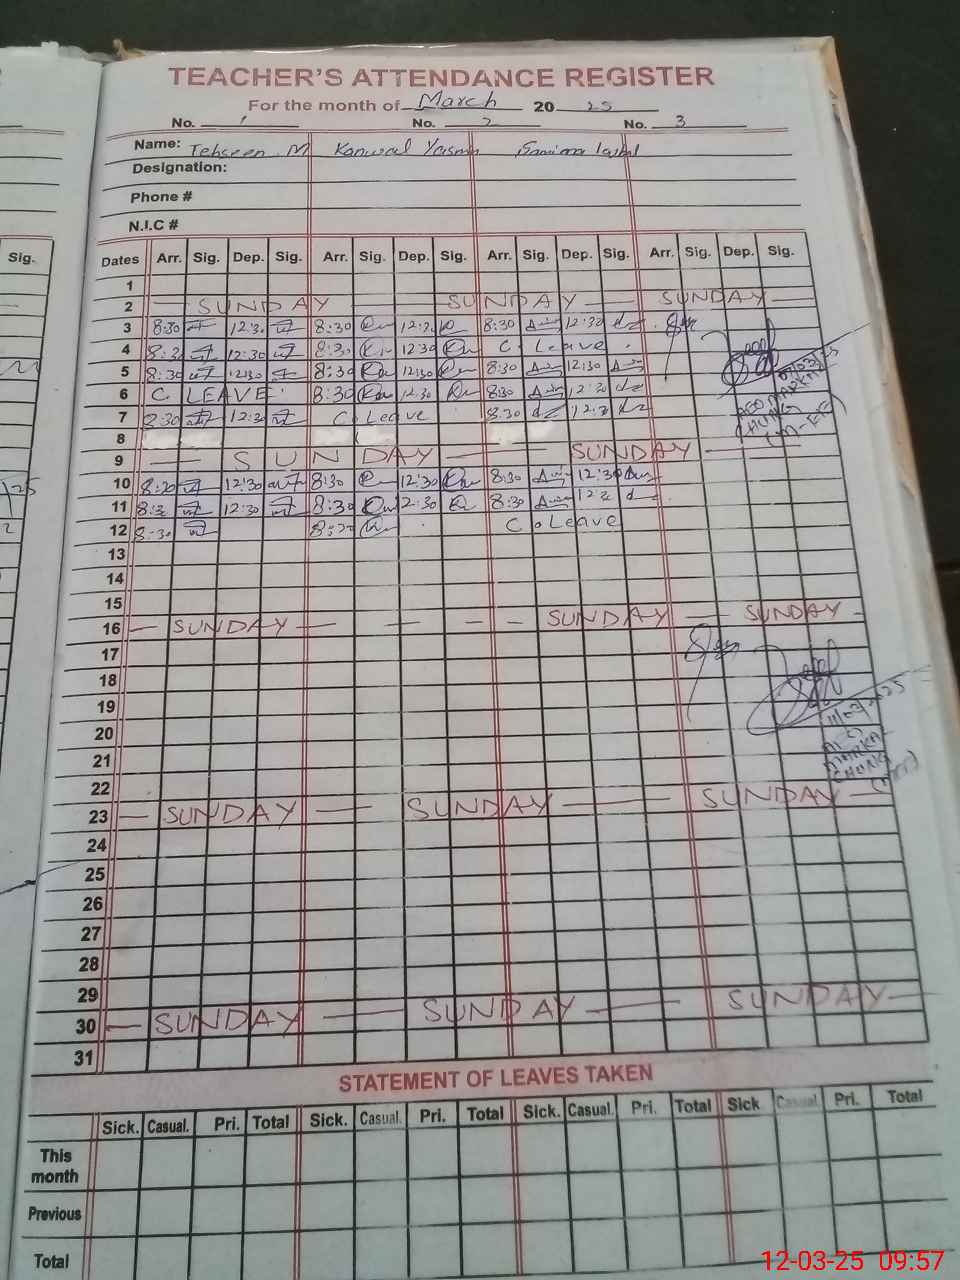 TEACHER'S ATTENDANCE REGISTER
For the month of March 20 25
No. 1 No. 2 No. 3
Name: Tehseen M Kanwal Yasmin
Designation:
Phone #
N.I.C #
Sig.
Dates Arr. Sig. Dep. Sig. Arr. Sig. Dep. Sig. Arr. Sig. Dep. Sig. Arr. Sig. Dep. Sig.
1
2 SUNDAY SUNDAY SUNDAY
3 8:30 12:30 8:30 12:30 8:30 12:30
4 8:30 12:30 8:30 12:30 C. Leave
5 8:30 12:30 8:30 12:30 8:30 12:30
6 C. LEAVE 8:30 12:30 8:30 12:30
7 8:30 12:30 C. Leave 8:30 12:30
8
9 SUNDAY SUNDAY
10 8:30 12:30 8:30 12:30 8:30 12:30
11 8:30 12:30 8:30 12:30 8:30 12:30
12 8:30 8:30 C. Leave
13
14
15
16 SUNDAY SUNDAY SUNDAY
17
18
19
20
11/03/2025
21
22
23 SUNDAY SUNDAY SUNDAY
24
25
26
27
28
29
30 SUNDAY SUNDAY SUNDAY
31
STATEMENT OF LEAVES TAKEN
Sick. Casual. Pri. Total Sick. Casual. Pri. Total Sick. Casual. Pri. Total Sick Casual. Pri. Total
This month
Previous
Total
12-03-25 09:57